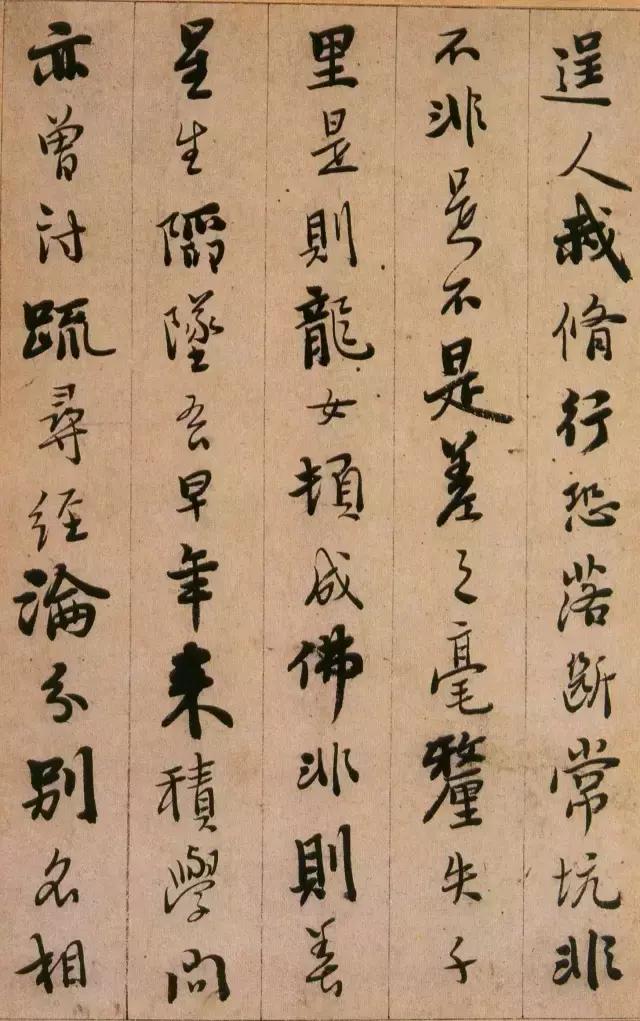 逞人我修行恐落斷常坑非
不非是不是差之毫釐失千
里是則龍女頓成佛非則善
星生陷墜吾早年來積學問
亦曾討疏尋經論分別名相